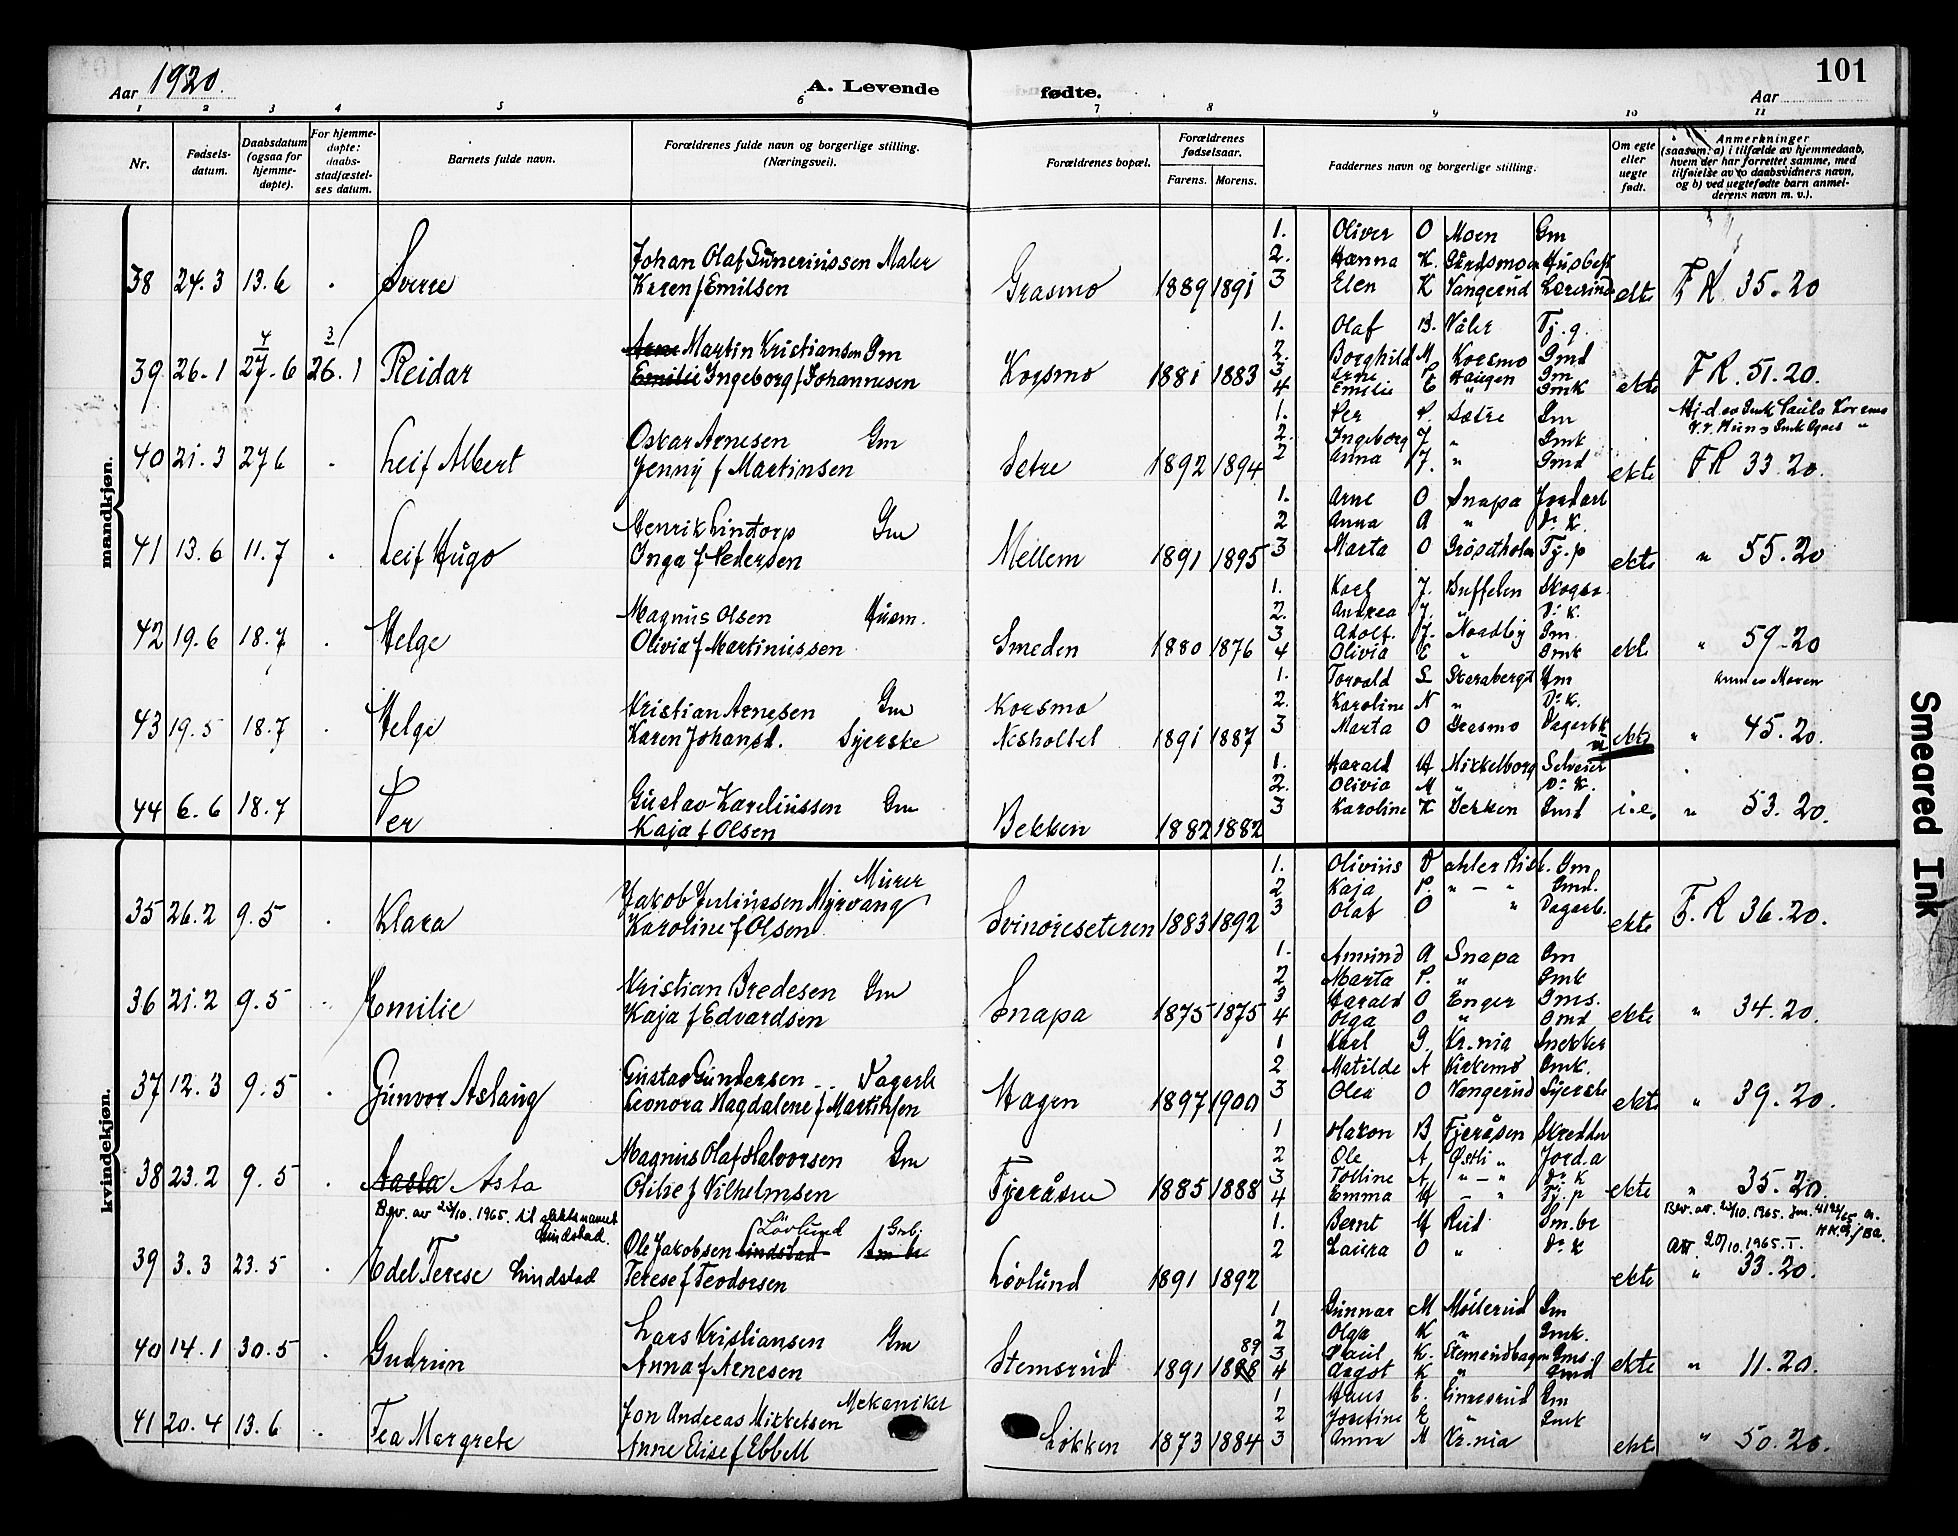 Aar 1920.
A. Levende fødte.
101
Aar
1 2 3 4 5 6 7 8 9 10 11
Nr.
Fødsels-
datum.
Daabsdatum
(ogsaa for
hjemme-
døpte).
For hjemme-
døpte:
daabs-
stadfæstel-
ses datum.
Barnets fulde navn.
Forældrenes fulde navn og borgerlige stilling.
(Næringsvei).
Forældrenes bopæl.
Forældrenes
fødselsaar.
Farens. Morens.
Faddernes navn og borgerlige stilling.
Om egte
eller
uegte
født.
Anmerkninger
(saasom: a) i tilfælde av hjemmedaab,
hvem der har forrettet samme, med
tilføielse av to daabsvidners navn,
og b) ved uegtefødte barn anmel-
derens navn m. v.).
mandkjøn.
38 24.3 13.6 Sverre
Johan Olaf Gunerinssen Maler
Karen f Emilsen
Grasmo 1889 1891
1. Oliver O Moen Gm
2. Hanna K.
3 Elen K Vangerud
ekte F R 35.20
39 26.1 27.6 26.1 Reidar
Arne Martin Kristiansen Gm
Emilie Ingeborg f Johannesen
Korsmo 1881 1883
1. Olaf B. Nåler Tj.g.
2. Borghild M Korsmo Gmd
3 Arne P Haugen Gm
4 Emilie E " Gmk
ekte F R. 51.20.
40 21.3 27 6 Leif Albert
Oskar Arnesen Gm
Jenny f Martinsen
Setre 1892 1894
1. Per P. Sætre Gm
2. Ingeborg J " Gmk
2 Anna J. " Gmd
ekte F R 33.20.
41 13.6 11.7 Leif Hugo
Henrik Lintorp Gm
Inga f Pedersen
Mellem 1891 1895
1. Arne O Snapa Jordarb
2 Anna A " Do K.
3 Marta O Grøsetholm Tj.p
ekte " 55.20
42 19.6 18.7 Helge
Magnus Olsen Husm.
Olivia f Martinussen
Smeden 1880 1876
1. Karl J. Buffelen Skogsa.
2. Andrea J. " Do K.
3 Adolf. J. Nordby Gm.
4 Olivia E " Gmk
ekte " 59-20
43 19.5 18.7 Helge
Kristian Arnesen Gm
Karen Johansd. Syerske
Korsmo
Nisholtet 1891 1887
1. Torvald S Skaraberget Hm
2. Karoline N " Do K.
3 Marta O Grasmo Dagarbk
ekte " 45.20.
44 6.6 18.7 Per
Gustav Karelinssen Gm
Kaja f Olsen
Bekken 1882 1882
1. Harald H Mikkelborg Selveier
2. Olivia M " Do K.
3 Karoline K Berken Gmd
i.e. " 53.20.
kvindekjøn.
35 26.2 9.5 Klara
Murer
Jakob Julinssen Myrvang
Karoline f Olsen
Svinøreseteren 1883 1892
1. Olivius D
2 Kaja P. " — " Gmd.
3 Olaf O " Dagarb.
ekte F. R 36.20.
36 21.2 9.5 Emilie
Kristian Bredesen Gm
Kaja f Edvardsen
Snapa 1875 1875
1. Amund A Snapa Gm
2 Marta P. " Gmk
3 Harald O Enger Gms.
4 Olga O " Gmd
ekte " 34.20.
37 12.3 9.5 Gunvor Aslaug
Gustav Gundersen Dagarb
Leonora Magdalene f Martinsen
Hagen 1897 1900
1 Karl G. Kr.nia Snekker
2 Matilde A Kirkemo Gmk.
3 Olea O Vangerud Syerske
ekte " 39.20.
38 23.2 9.5 Aasta Asta
Magnus Olaf Halvorsen Gm
Otilie f Vilhelmsen
Fjeråsen 1885 1888
1 Hakon B Fjeråsen Skredder
2 Ole A, Østli " Jord.a
3 Tolline A, " - " Do K
4 Emma H - " Tj.p
ekte " 35.20.
Bev. av 23/10. 1965. til slektsnavnet
Lindstad.
39 3.3 23.5 Edel Terese Lindstad
Løvlund
Ole Jakobsen Lindstad
Terese f Teodorsen
Løvlund 1891 1892
1. Bernt H Rud Gm.br
2 Laura O " Do K
ekte " 33.20.
40 14.1 30.5 Gudrun
Lars Kristiansen Gm
Anna f Arnesen
Stemsrud 1891 1888 89
1 Gunnar M Møllerud Gm
2 Olga K " Gmk.
3 Paul K. Stemsrudhagen Gms.
4 Aagot K " Gmd
ekte " 11.20.
41 20.4 13.6 Tea Margrete
Mekaniker
Jon Andreas Mikkelsen
Anne Elise f Ebbell
Løkken 1873 1884
1 Hans E. Linnesrud Gm
2 Josefine E " Gmk
3 Anna M Kr.nia
ekte " 50.20.
Smeared Ink